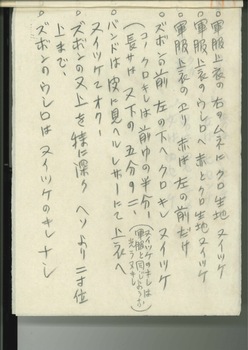 ○軍服上衣の右のムネにクロ生地ヌイツケ
○軍服上衣のウしロへ赤とクロ生地ヌイツケ
○軍服上衣のエリ 赤は左の前だけ
○ズボンの前 左の下へクロキレヌイツケ
（コノクロキレは前巾の半分、
長サは 又下の五分の二、）
（ヌイツケのキレは
軍服と同じわうか
光ラヌキレ）
○バンドは皮に見ヘルレザーにて上衣へ
ヌイツケてオク、
○ズボンの又上を特に深く ヘソより二寸位
上まで、
ズボンのウしロはヌイツケのキレナシ